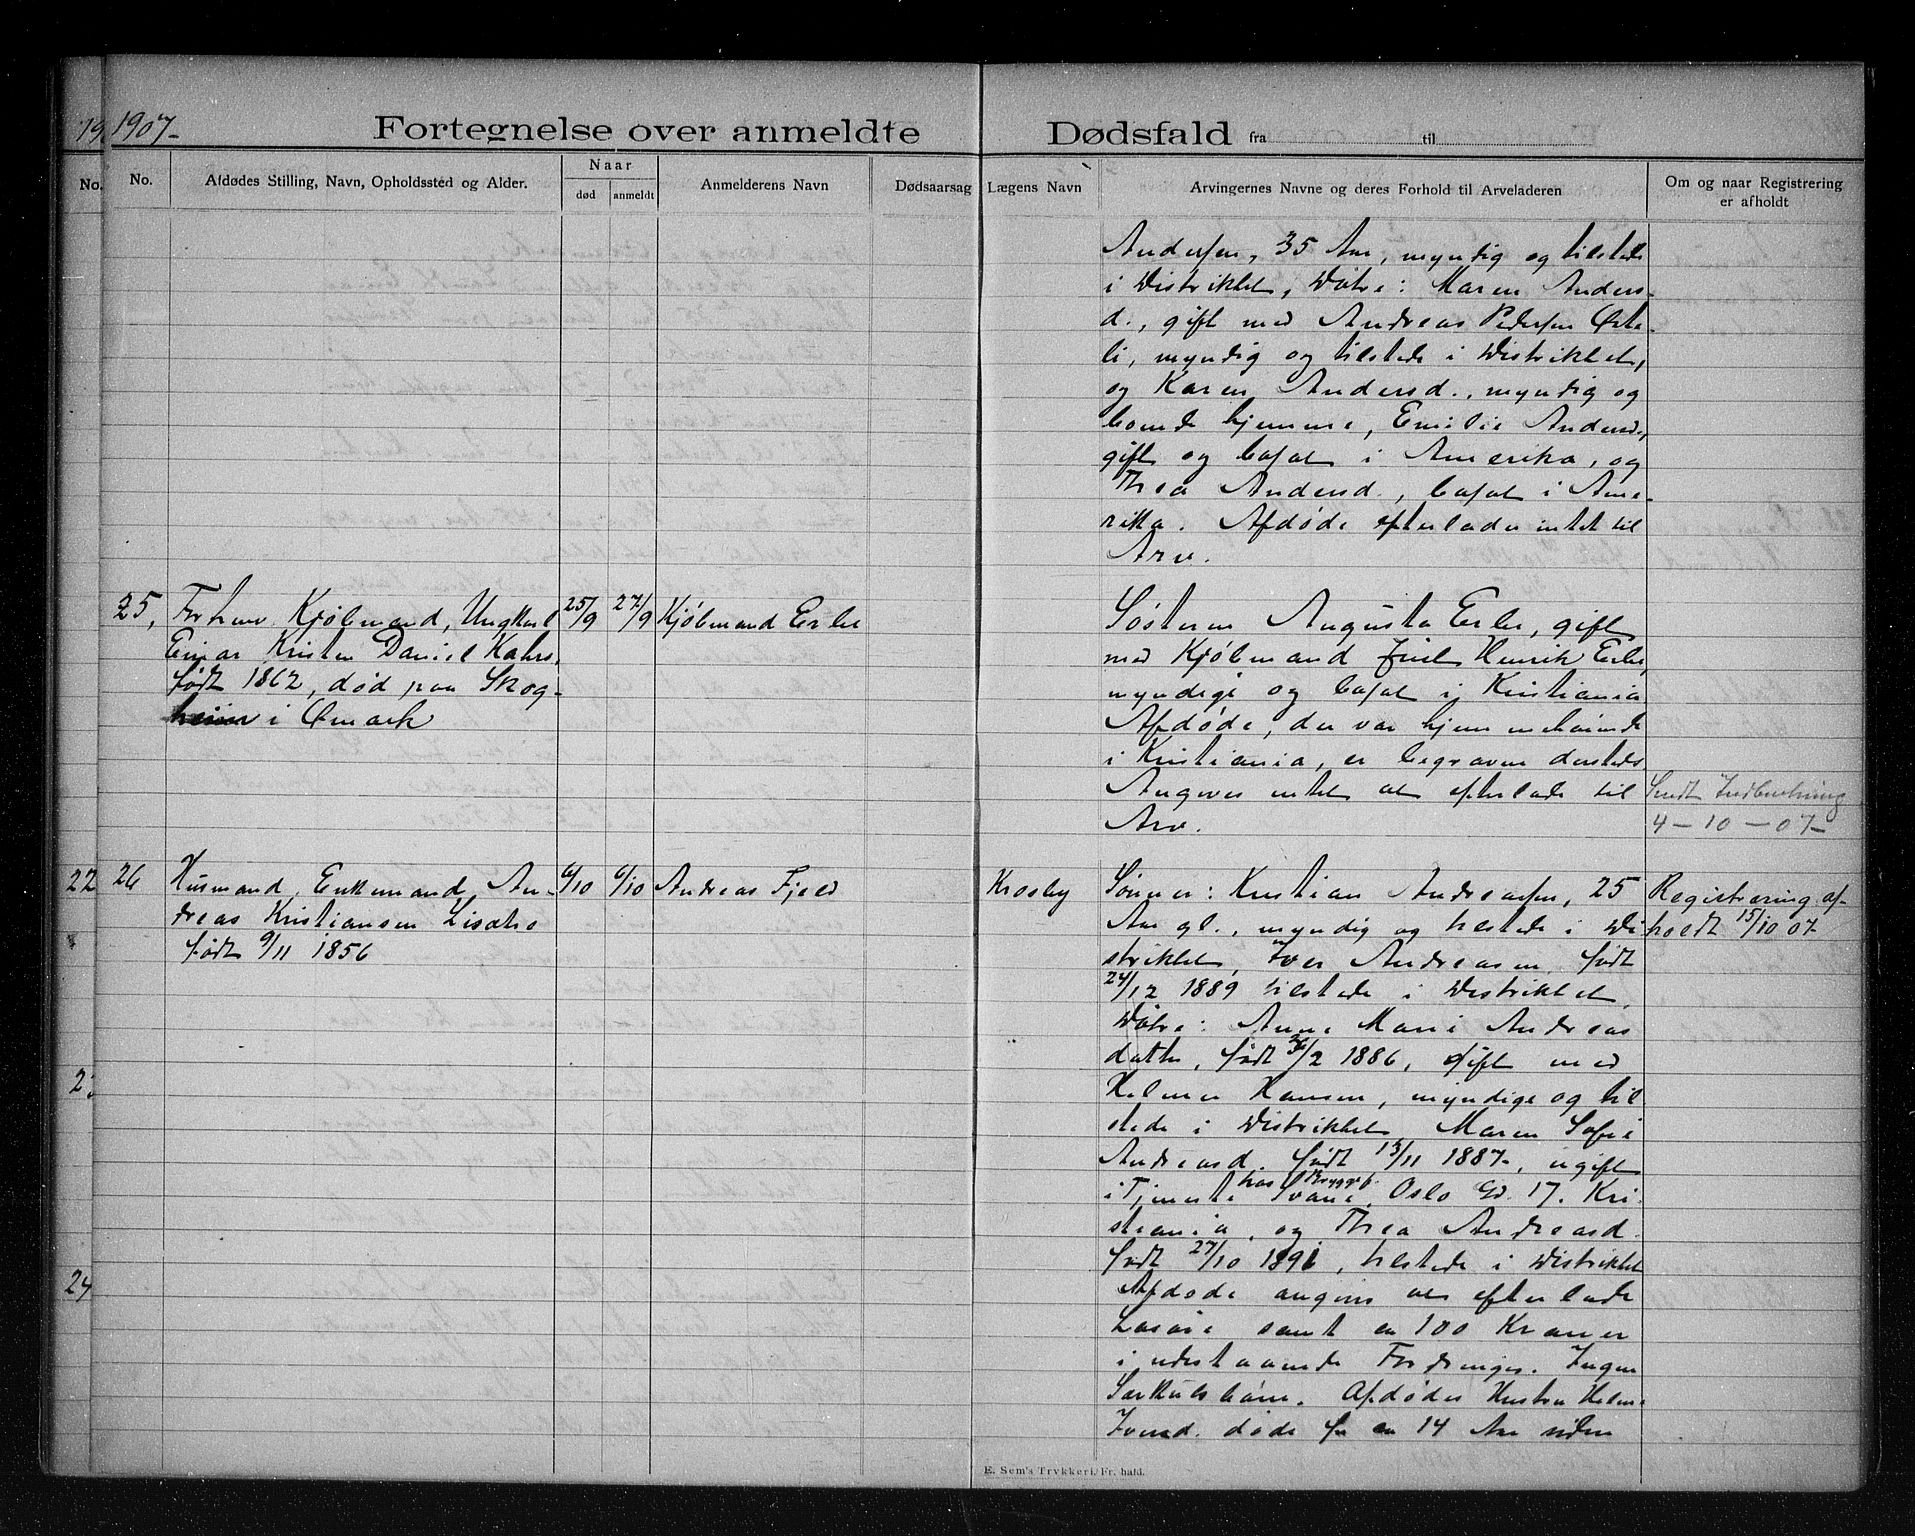 19
1907-
Fortegnelse over anmeldte
Dødsfald fra til
No.
No.
Afdødes Stilling, Navn, Opholdssted og Alder.
Naar
død
anmeldt
Anmelderens Navn
Dødsaarsag
Lægens Navn
Arvingernes Navne og deres Forhold til Arveladeren
Om og naar Registrering
er afholdt
Andersen, 35 Aar, myndig og tilstede
i Distriktet, Døtre: Maren Anders-
d., gift med Andreas Pedersen Øste-
li, myndig og tilstede i Distriktet,
og Karen Andersd., myndig og
boende hjemme, Emilie Andersd.,
gift og bosat i Amerika, og
Thea Andersd., bosat i Ame-
rika. Afdøde efterlader intet til
Arv.
25, Forhenv. Kjøbmand, Ungkarl
Einar Kristen Daniel Kahrs,
født 1862, død paa Skog-
heim i Ømark
25/9 27/9 Kjøbmand Erbe
Søsteren Augusta Erbe, gift
med Kjøbmand Juul Henrik Erbe,
myndige og bosat i Kristiania
Afdøde, der var hjemmehørende
i Kristiania, er begraven dersteds
Angives intet at efterlade til
Arv.
Sendt Indberetning
4-10-07-
22
26 Husmand, Enkemand, An-
dreas Kristiansen Lisæter
født 9/11 1856
6/10 6/10 Andreas Fjeld
Krosby
Sønner: Kristian Andreasen, 25
Aar gl., myndig og tilstede i Di
striktet, Iver Andreasen, født
24/12 1889 tilstede i Distriktet,
Døtre: Anne Marie Andreas
datter, født 26/2 1886, gift med
Helmer Hansen, myndige og til
stede i Distriktet, Maren Sofie
Andreasd. født 13/11 1887, ugift
i Tjeneste hos Svane, Oslo Gd. 17. Kri
stiania, og Thea Andreasd.
født 27/10 1891, tilstede i Distriktet
Afdøde angives at efterlade
Løsøre samt ca 100 Kroner
i udestaaende Fordringer. Ingen
Særkulsbørn. Afdødes Hustru Helene
Iversd. døde for ca 14 Aar siden
Registrering af-
holdt 15/10 07
23
24
E. Sem's Trykkeri, Fr. hald.